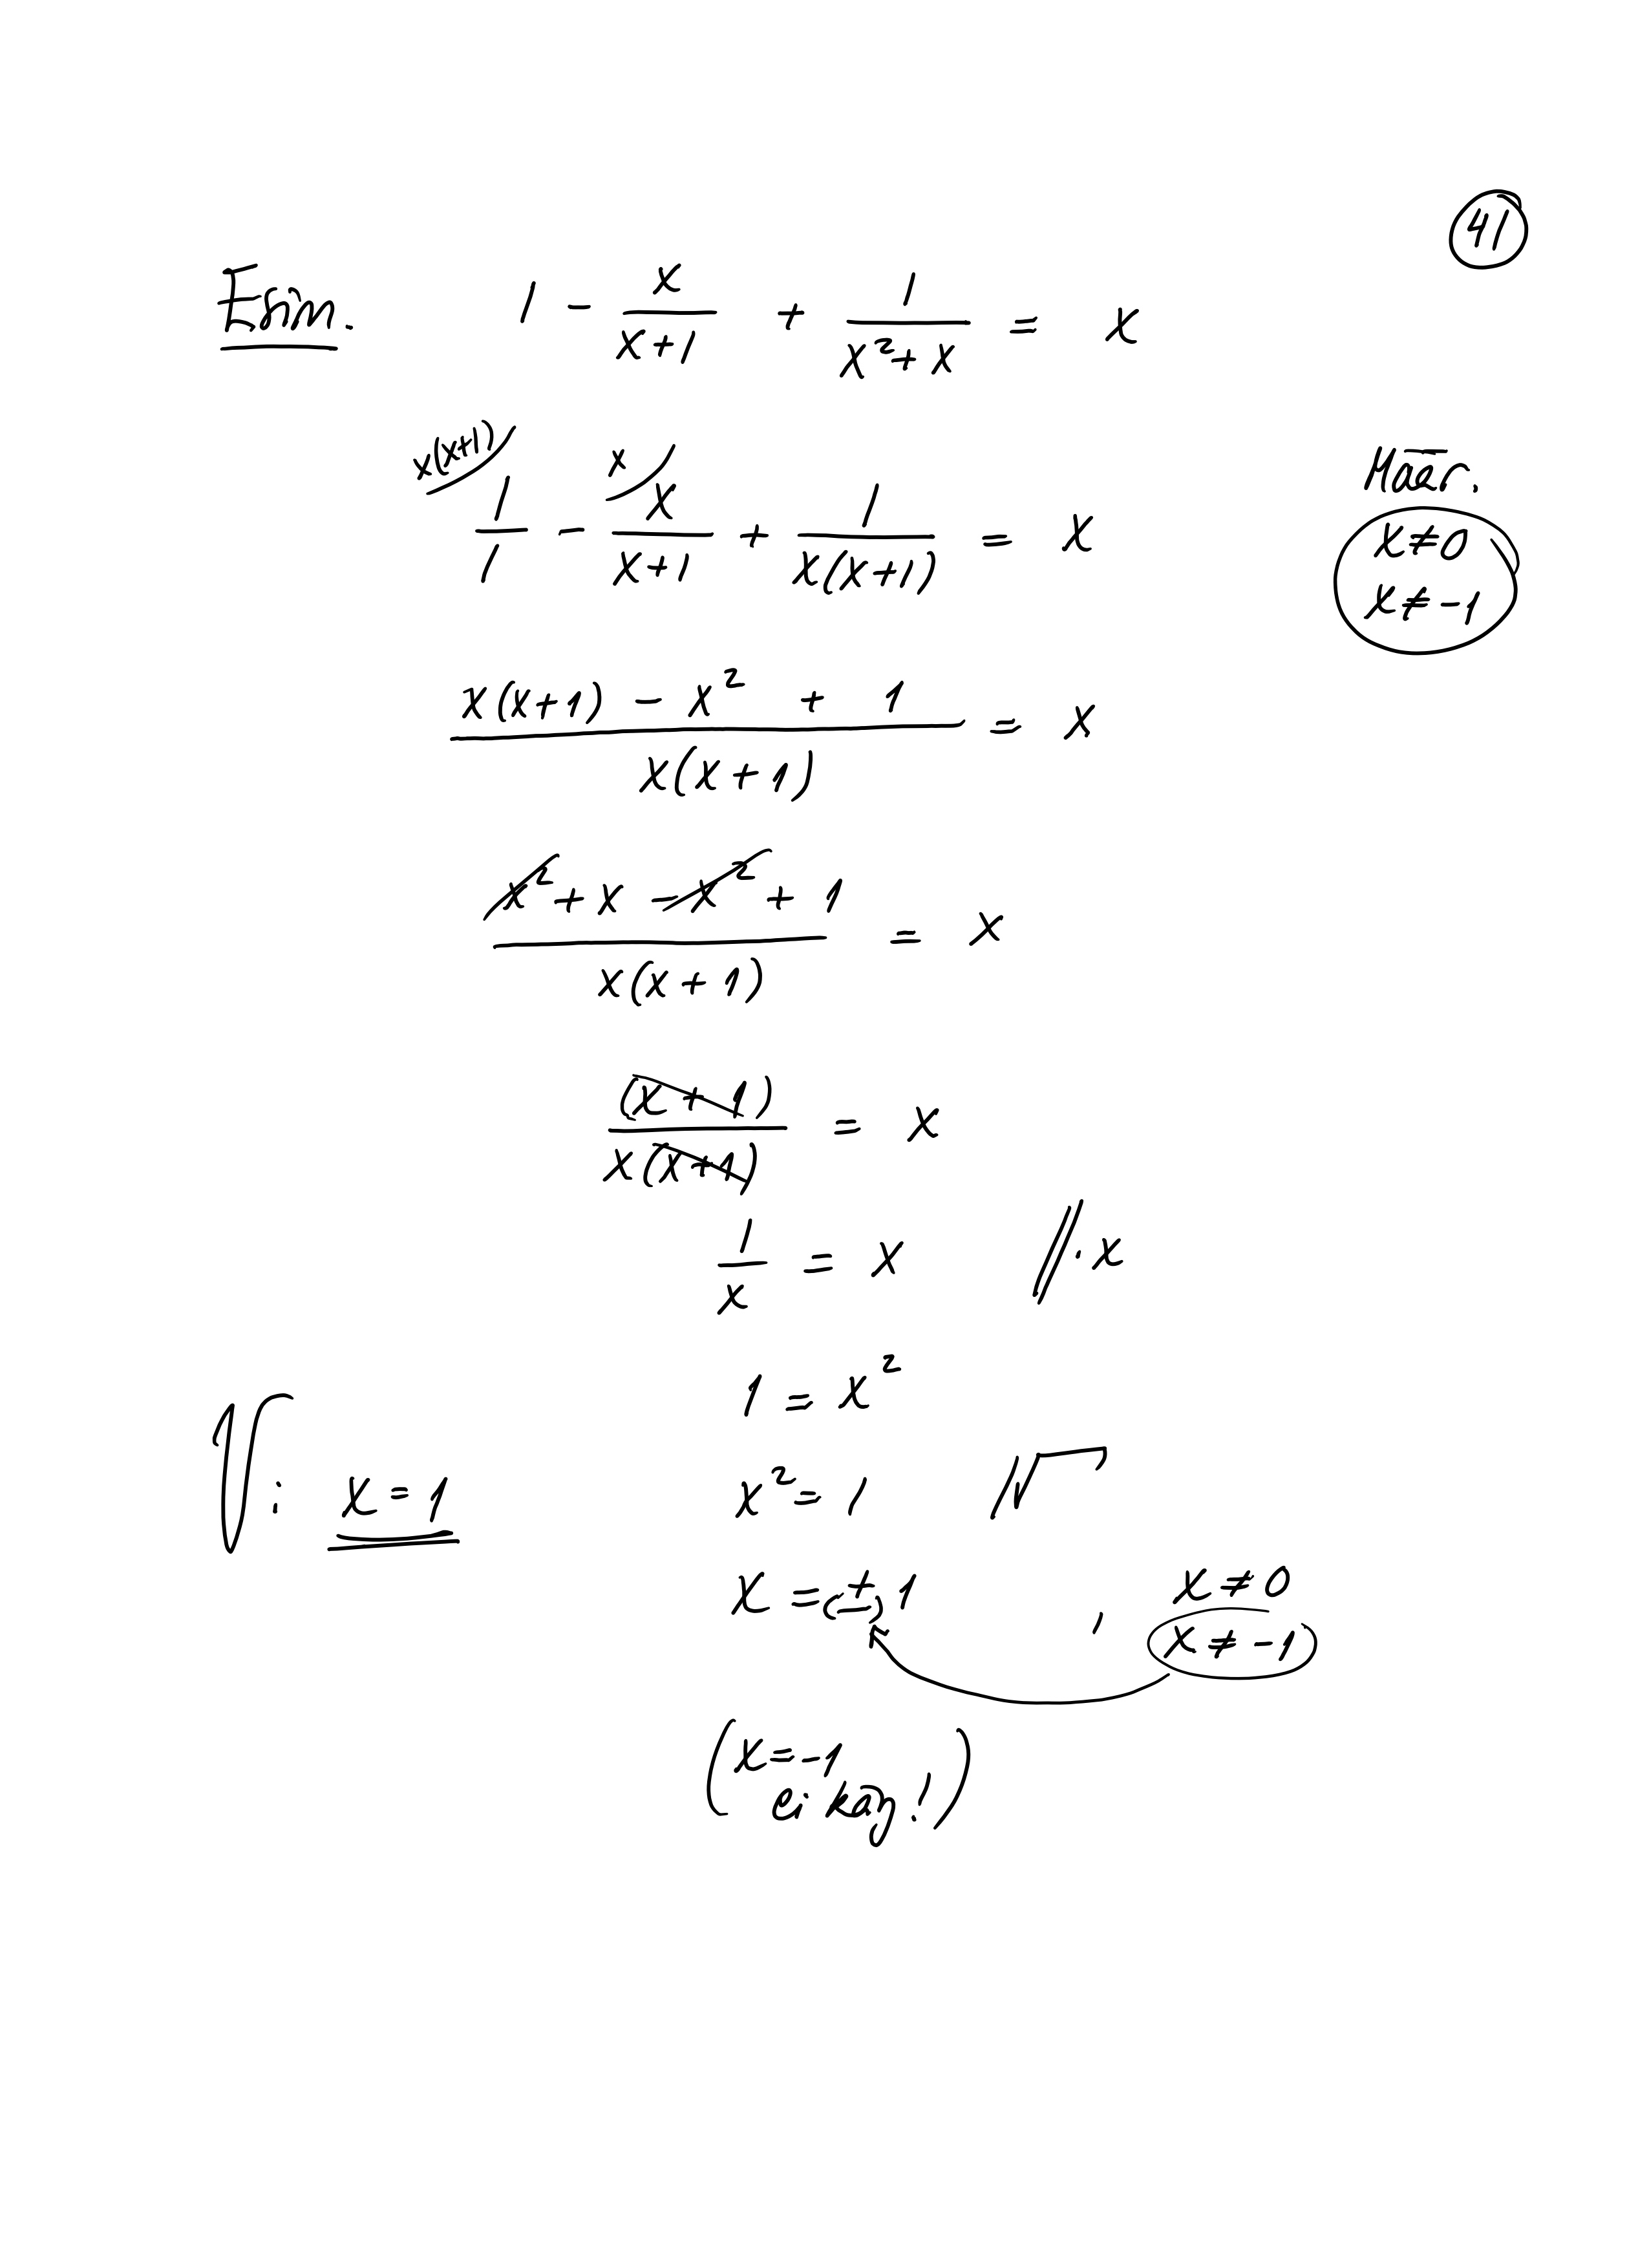 41
Esim. 1 - x/(x+1) + 1/(x²+x) = x
x(x+1)) 1/1 - x) x/(x+1) + 1/(x(x+1)) = x
Määr.
x≠0
x≠-1
(x(x+1) - x² + 1)/(x(x+1)) = x
(x² + x - x² + 1)/(x(x+1)) = x
(x+1)/(x(x+1)) = x
1/x = x ||·x
1 = x²
x² = 1 |√
V: x = 1
x = ±1 , x≠0
x≠-1
(x=-1
ei käy!)